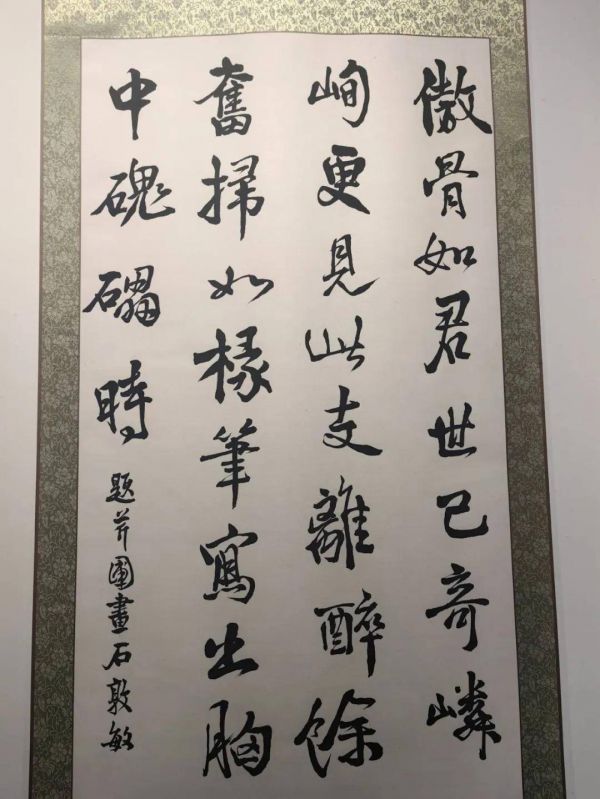 傲骨如君世已奇嶙
峋更見此支離醉餘
奮掃如椽筆寫出胸
中磈礧時
題芹圃畫石敦敏